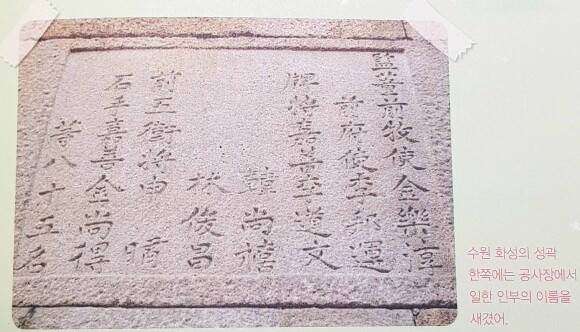 監董前牧使金樂淳
前府使李邦運
牌將嘉善李道文
尙禧
林俊昌
前五衛將申
石手嘉善金尙得
等八十五名
수원 화성의 성곽
한쪽에는 공사장에서
일한 인부의 이름을
새겼어.